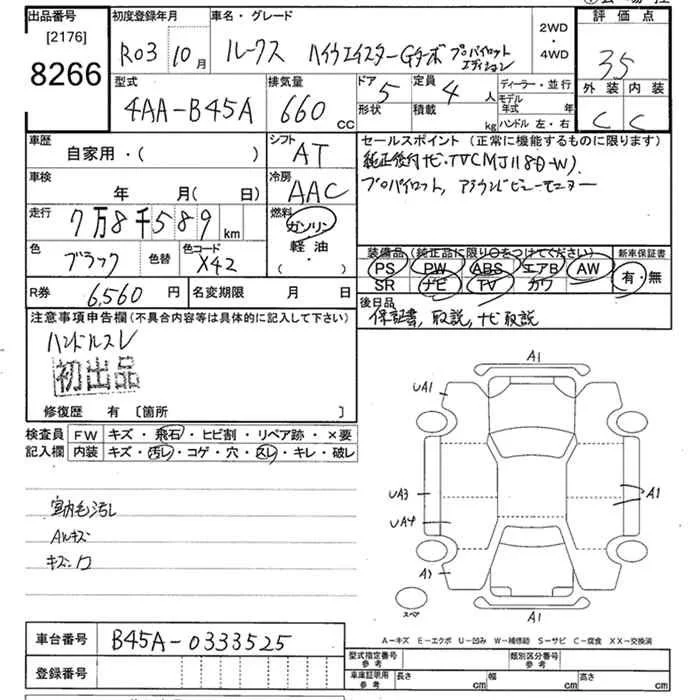 出品番号
[2176]
8266
初度登録年月
R03 10月
車名・グレード
ルークス ハイウエイスターGターボ プロパイロット
エディション
2WD
・
4WD
評価点
35
外装 内装
C C
型式
4AA-B45A
排気量
660 cc
ドア
5
定員
4 人
形状
積載
kg
ディーラー・並行
モデル
年式 年
ハンドル 左・右
車歴
自家用・( )
シフト
AT
車検
年 月( )
冷房
AAC
走行
7万8千589 km
燃料
ガソリン
・
軽油
・
( )
色
ブラック
色替
色コード
X42
セールスポイント(正常に機能するものに限ります)
純正後付ナビ・TV(MJ118D-W).
プロパイロット, アラウンドビューモニター
装備品(純正品に限り○をつけてください)
PS PW ABS エアB AW
SR ナビ TV カワ
新車保証書
有・無
R券 6,560 円
名変期限 月 日
後日品
保証書, 取説, ナビ取説
注意事項申告欄(不具合内容等は具体的に記入して下さい)
ハンドルスレ
初出品
修復歴 有 〔箇所 〕
検査員
記入欄
FW キズ・飛石・ヒビ割・リペア跡・×要
内装 キズ・汚レ・コゲ・穴・スレ・キレ・破レ
室内毛汚レ
AWキズ
A1
UA1
UA3
UA4
A1
A1
スペア
A-キズ E-エクボ U-凹み W-補修跡 S-サビ C-腐食 XX-交換済
車台番号
B45A-0333525
登録番号
型式指定番号
参考
類別区分番号
参考
車庫証明用
参考
長さ cm
幅 cm
高さ cm